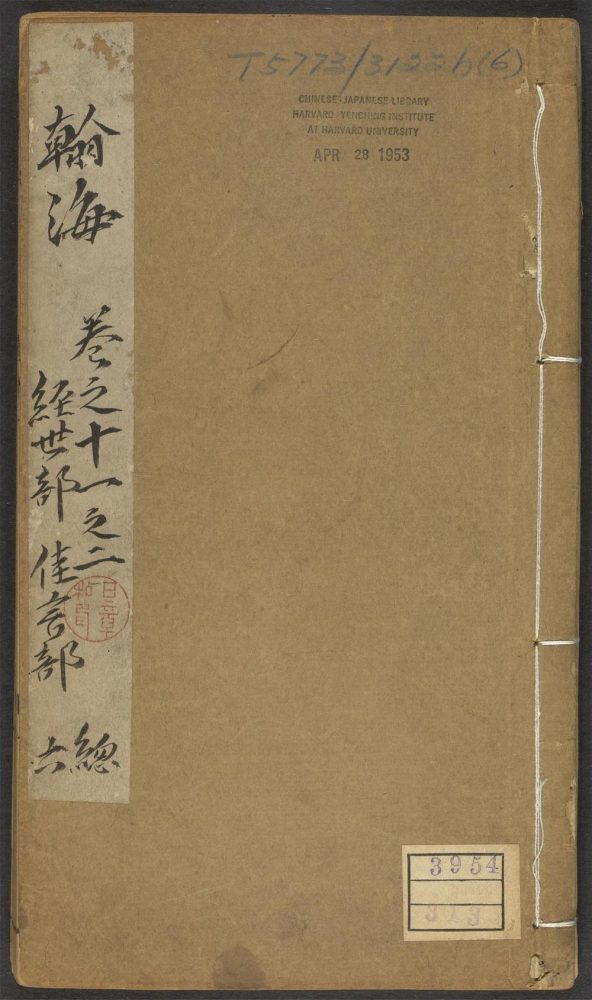 T5773/3122b(6)
CHINESE-JAPANESE LIBRARY
HARVARD-YENCHING INSTITUTE
AT HARVARD UNIVERSITY
APR 28 1953
翰海
卷之十一之二
経世部 佳言部
總
六
3954